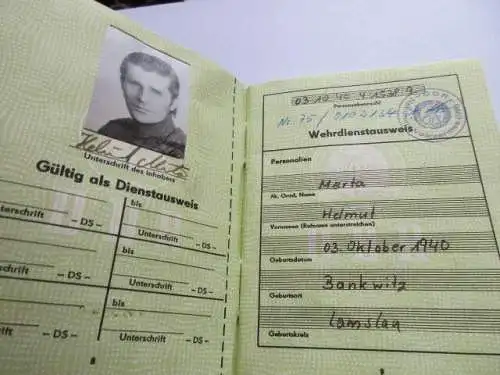 Helmut Marta
Unterschrift des Inhabers
Gültig als Dienstausweis
bis
Unterschrift – DS –
Unterschrift – DS –
bis
Unterschrift – DS –
Unterschrift – DS –
bis
Unterschrift – DS –
Unterschrift – DS –
8
03 10 40 4 1538 9
Personenkennzahl
Nr. 75/
Wehrdienstausweis
Personalien
Marta
Ak. Grad, Name
Helmut
Vornamen (Rufnamen unterstreichen)
03. Oktober 1940
Geburtsdatum
Bankwitz
Geburtsort
Lamslau
Geburtskreis
9